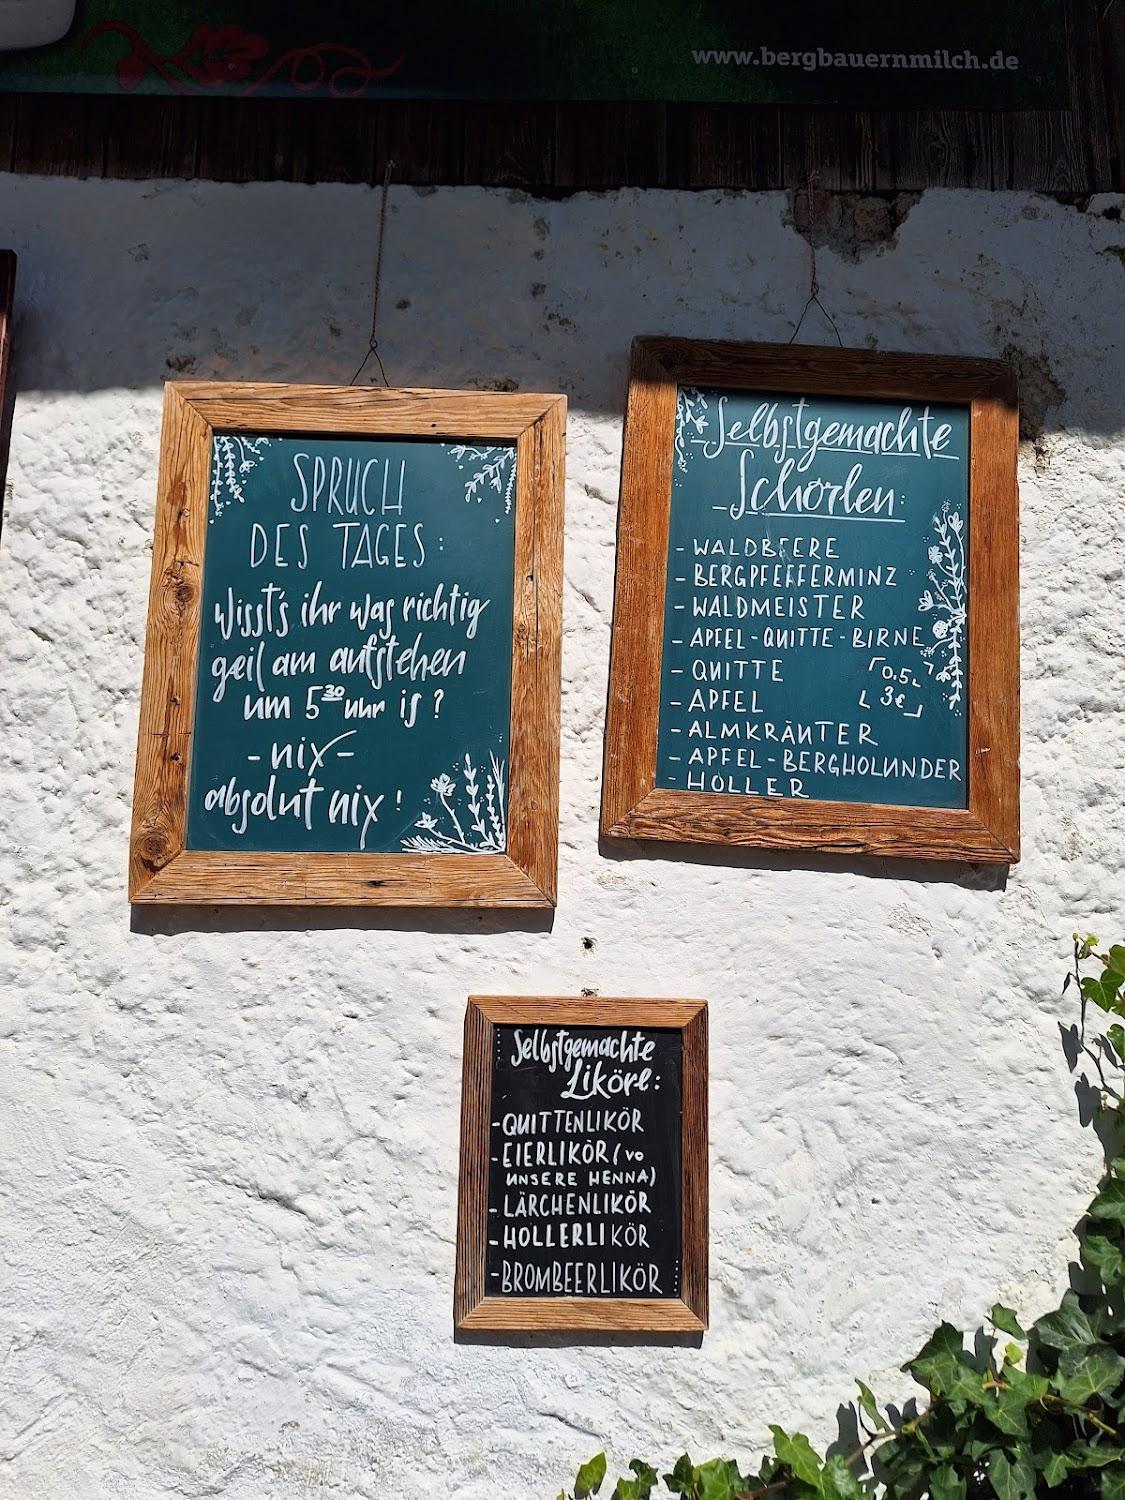 www.bergbauernmilch.de
SPRUCH
DES TAGES:
Wisst's ihr was richtig
geil am aufstehen
um 5³⁰ uhr is?
-nix-
absolut nix!
Selbstgemachte
Schorlen:
- WALDBEERE
- BERGPFEFFERMINZ
- WALDMEISTER
- APFEL-QUITTE-BIRNE
- QUITTE
0,5L
- APFEL
3€
- ALMKRÄUTER
- APFEL-BERGHOLUNDER
- HOLLER
Selbstgemachte
Liköre:
-QUITTENLIKÖR
-EIERLIKÖR (vo
UNSERE HENNA)
-LÄRCHENLIKÖR
-HOLLERLIKÖR
-BROMBEERLIKÖR